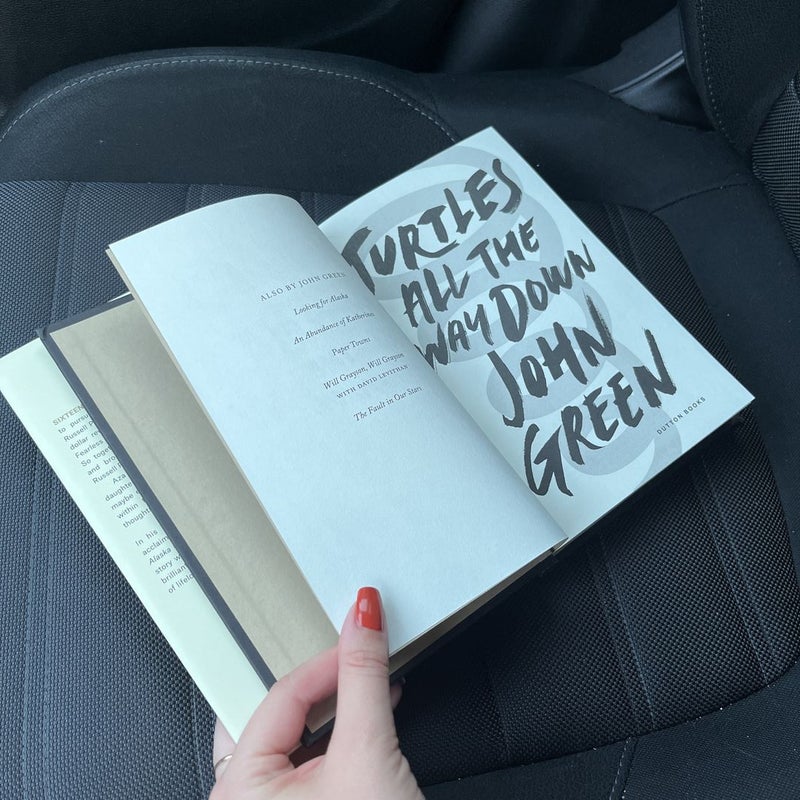 SIXTEEN
to pursu
Russell P
dollar re
Fearless
So toge
and bro
Russell P
Aza
daughte
maybe
within
thought
In his
acclaim
Alaska
story w
brillian
of lifelo
ALSO BY JOHN GREEN
Looking for Alaska
An Abundance of Katherines
Paper Towns
Will Grayson, Will Grayson
WITH DAVID LEVITHAN
The Fault in Our Stars
TURTLES
ALL THE
WAY DOWN
JOHN
GREEN
DUTTON BOOKS